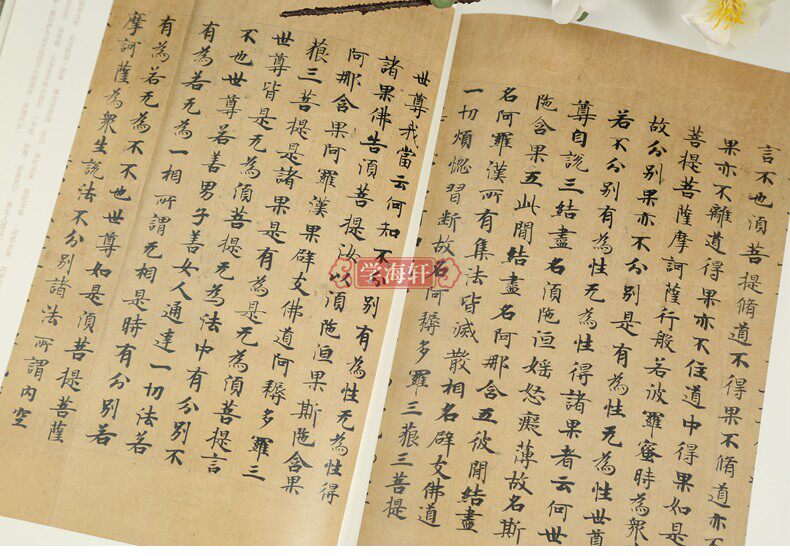 言不也須菩提脩道不得果不脩道不
果亦不離道得果亦不住道中得果如是
菩提菩薩摩訶薩行般若波羅蜜時為眾
故分別果亦不分別是有為性无為性世尊
若不分別有為性无為性得諸果者云何世
尊自說三結盡名須陁洹婬怒癡薄故名斯
陁含果五此閒結盡名阿那含五彼閒結盡
名阿羅漢所有集法皆滅散相名辟支佛道
一切煩惱習斷故名阿耨多羅三藐三菩提
世尊我當云何知不分別有為性无為性得
諸果佛告須菩提汝以須陁洹果斯陁含果
阿那含果阿羅漢果辟支佛道阿耨多羅三
藐三菩提是諸果是有為是无為須菩提言
世尊皆是无為須菩提无為法中有分別不
不也世尊若善男子善女人通達一切法若
有為若无為一相所謂无相是時有分別若
有為若无為不不也世尊如是須菩提菩薩
摩訶薩為眾生說法不分別諸法所謂內空
学海轩